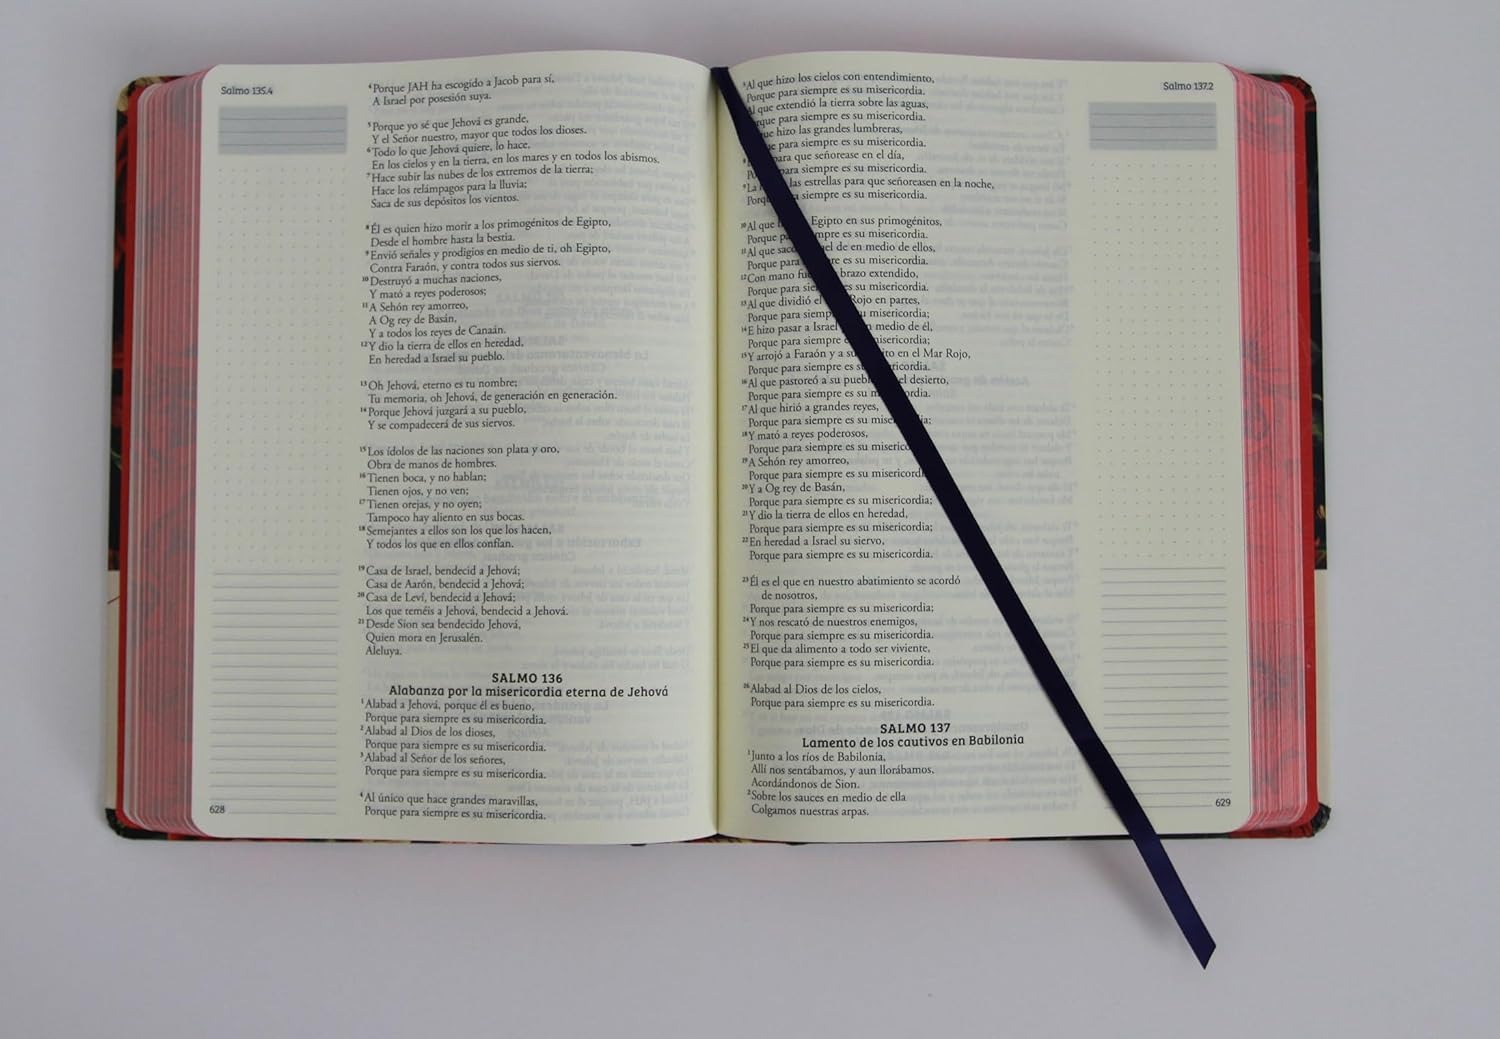 Salmo 135.4
⁴Porque JAH ha escogido a Jacob para sí,
A Israel por posesión suya.
⁵Porque yo sé que Jehová es grande,
Y el Señor nuestro, mayor que todos los dioses.
⁶Todo lo que Jehová quiere, lo hace,
En los cielos y en la tierra, en los mares y en todos los abismos.
⁷Hace subir las nubes de los extremos de la tierra;
Hace los relámpagos para la lluvia;
Saca de sus depósitos los vientos.
⁸Él es quien hizo morir a los primogénitos de Egipto,
Desde el hombre hasta la bestia.
⁹Envió señales y prodigios en medio de ti, oh Egipto,
Contra Faraón, y contra todos sus siervos.
¹⁰Destruyó a muchas naciones,
Y mató a reyes poderosos;
¹¹A Sehón rey amorreo,
A Og rey de Basán,
Y a todos los reyes de Canaán.
¹²Y dio la tierra de ellos en heredad,
En heredad a Israel su pueblo.
¹³Oh Jehová, eterno es tu nombre;
Tu memoria, oh Jehová, de generación en generación.
¹⁴Porque Jehová juzgará a su pueblo,
Y se compadecerá de sus siervos.
¹⁵Los ídolos de las naciones son plata y oro,
Obra de manos de hombres.
¹⁶Tienen boca, y no hablan;
Tienen ojos, y no ven;
¹⁷Tienen orejas, y no oyen;
Tampoco hay aliento en sus bocas.
¹⁸Semejantes a ellos son los que los hacen,
Y todos los que en ellos confían.
¹⁹Casa de Israel, bendecid a Jehová;
Casa de Aarón, bendecid a Jehová;
²⁰Casa de Leví, bendecid a Jehová;
Los que teméis a Jehová, bendecid a Jehová.
²¹Desde Sion sea bendecido Jehová,
Quien mora en Jerusalén.
Aleluya.
SALMO 136
Alabanza por la misericordia eterna de Jehová
¹Alabad a Jehová, porque él es bueno,
Porque para siempre es su misericordia.
²Alabad al Dios de los dioses,
Porque para siempre es su misericordia.
³Alabad al Señor de los señores,
Porque para siempre es su misericordia.
⁴Al único que hace grandes maravillas,
Porque para siempre es su misericordia.
628
Salmo 137.2
⁵Al que hizo los cielos con entendimiento,
Porque para siempre es su misericordia.
Al que extendió la tierra sobre las aguas,
para siempre es su misericordia.
hizo las grandes lumbreras,
para siempre es su misericordia.
⁸ para que señorease en el día,
para siempre es su misericordia.
⁹La las estrellas para que señoreasen en la noche,
siempre es su misericordia.
¹⁰Al que Egipto en sus primogénitos,
Porque siempre es su misericordia.
¹¹Al que de en medio de ellos,
Porque para es su misericordia.
¹²Con mano brazo extendido,
Porque para es su misericordia.
¹³Al que dividió el Rojo en partes,
Porque para su misericordia;
¹⁴E hizo pasar a Israel medio de él,
Porque para siempre misericordia;
¹⁵Y arrojó a Faraón y a en el Mar Rojo,
Porque para siempre es
¹⁶Al que pastoreó a su el desierto,
Porque para siempre es
¹⁷Al que hirió a grandes reyes,
Porque para siempre es su
¹⁸Y mató a reyes poderosos,
Porque para siempre es su
¹⁹A Sehón rey amorreo,
Porque para siempre es su
²⁰Y a Og rey de Basán,
Porque para siempre es su misericordia;
²¹Y dio la tierra de ellos en heredad,
Porque para siempre es su misericordia;
²²En heredad a Israel su siervo,
Porque para siempre es su misericordia.
²³Él es el que en nuestro abatimiento se acordó
de nosotros,
Porque para siempre es su misericordia;
²⁴Y nos rescató de nuestros enemigos,
Porque para siempre es su misericordia.
²⁵El que da alimento a todo ser viviente,
Porque para siempre es su misericordia.
²⁶Alabad al Dios de los cielos,
Porque para siempre es su misericordia.
SALMO 137
Lamento de los cautivos en Babilonia
¹Junto a los ríos de Babilonia,
Allí nos sentábamos, y aun llorábamos.
Acordándonos de Sion.
²Sobre los sauces en medio de ella
Colgamos nuestras arpas.
629